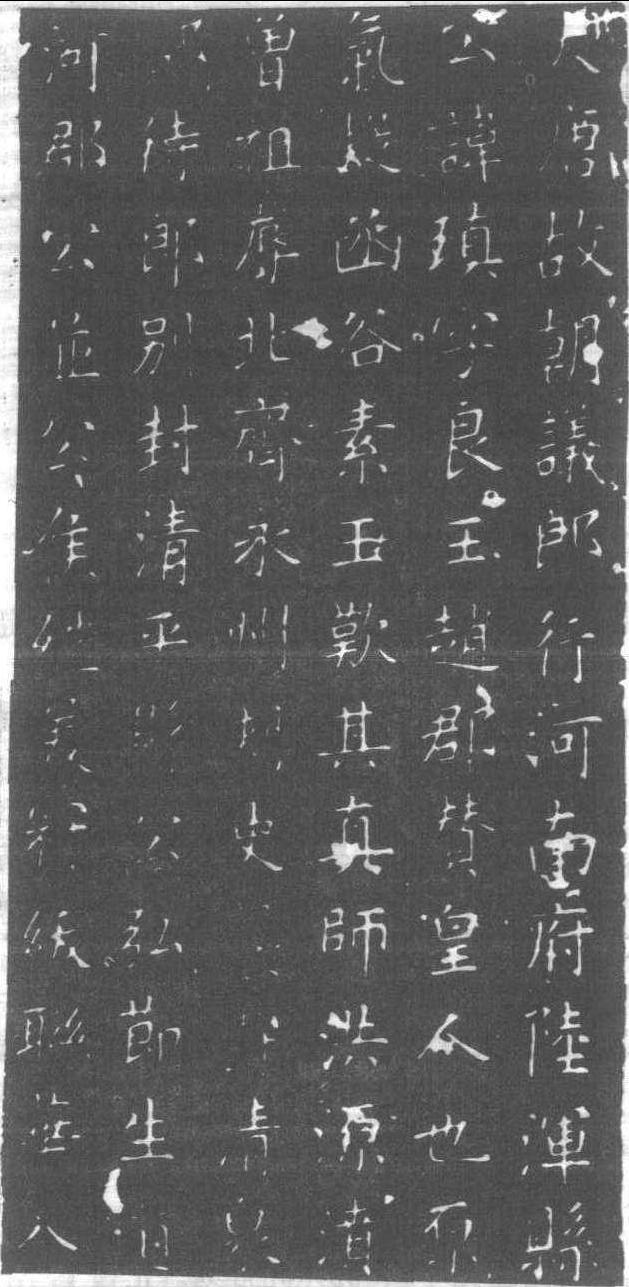 大唐故朝議郎行河南府陸渾縣
公諱瑱字良玉趙郡贊皇人也
氣函谷素王歎其真師洪源濬
曾祖北齊永州刺史清泉
侍郎別封清平縣公弘節生道
河郡公並公侯美紱聯華八